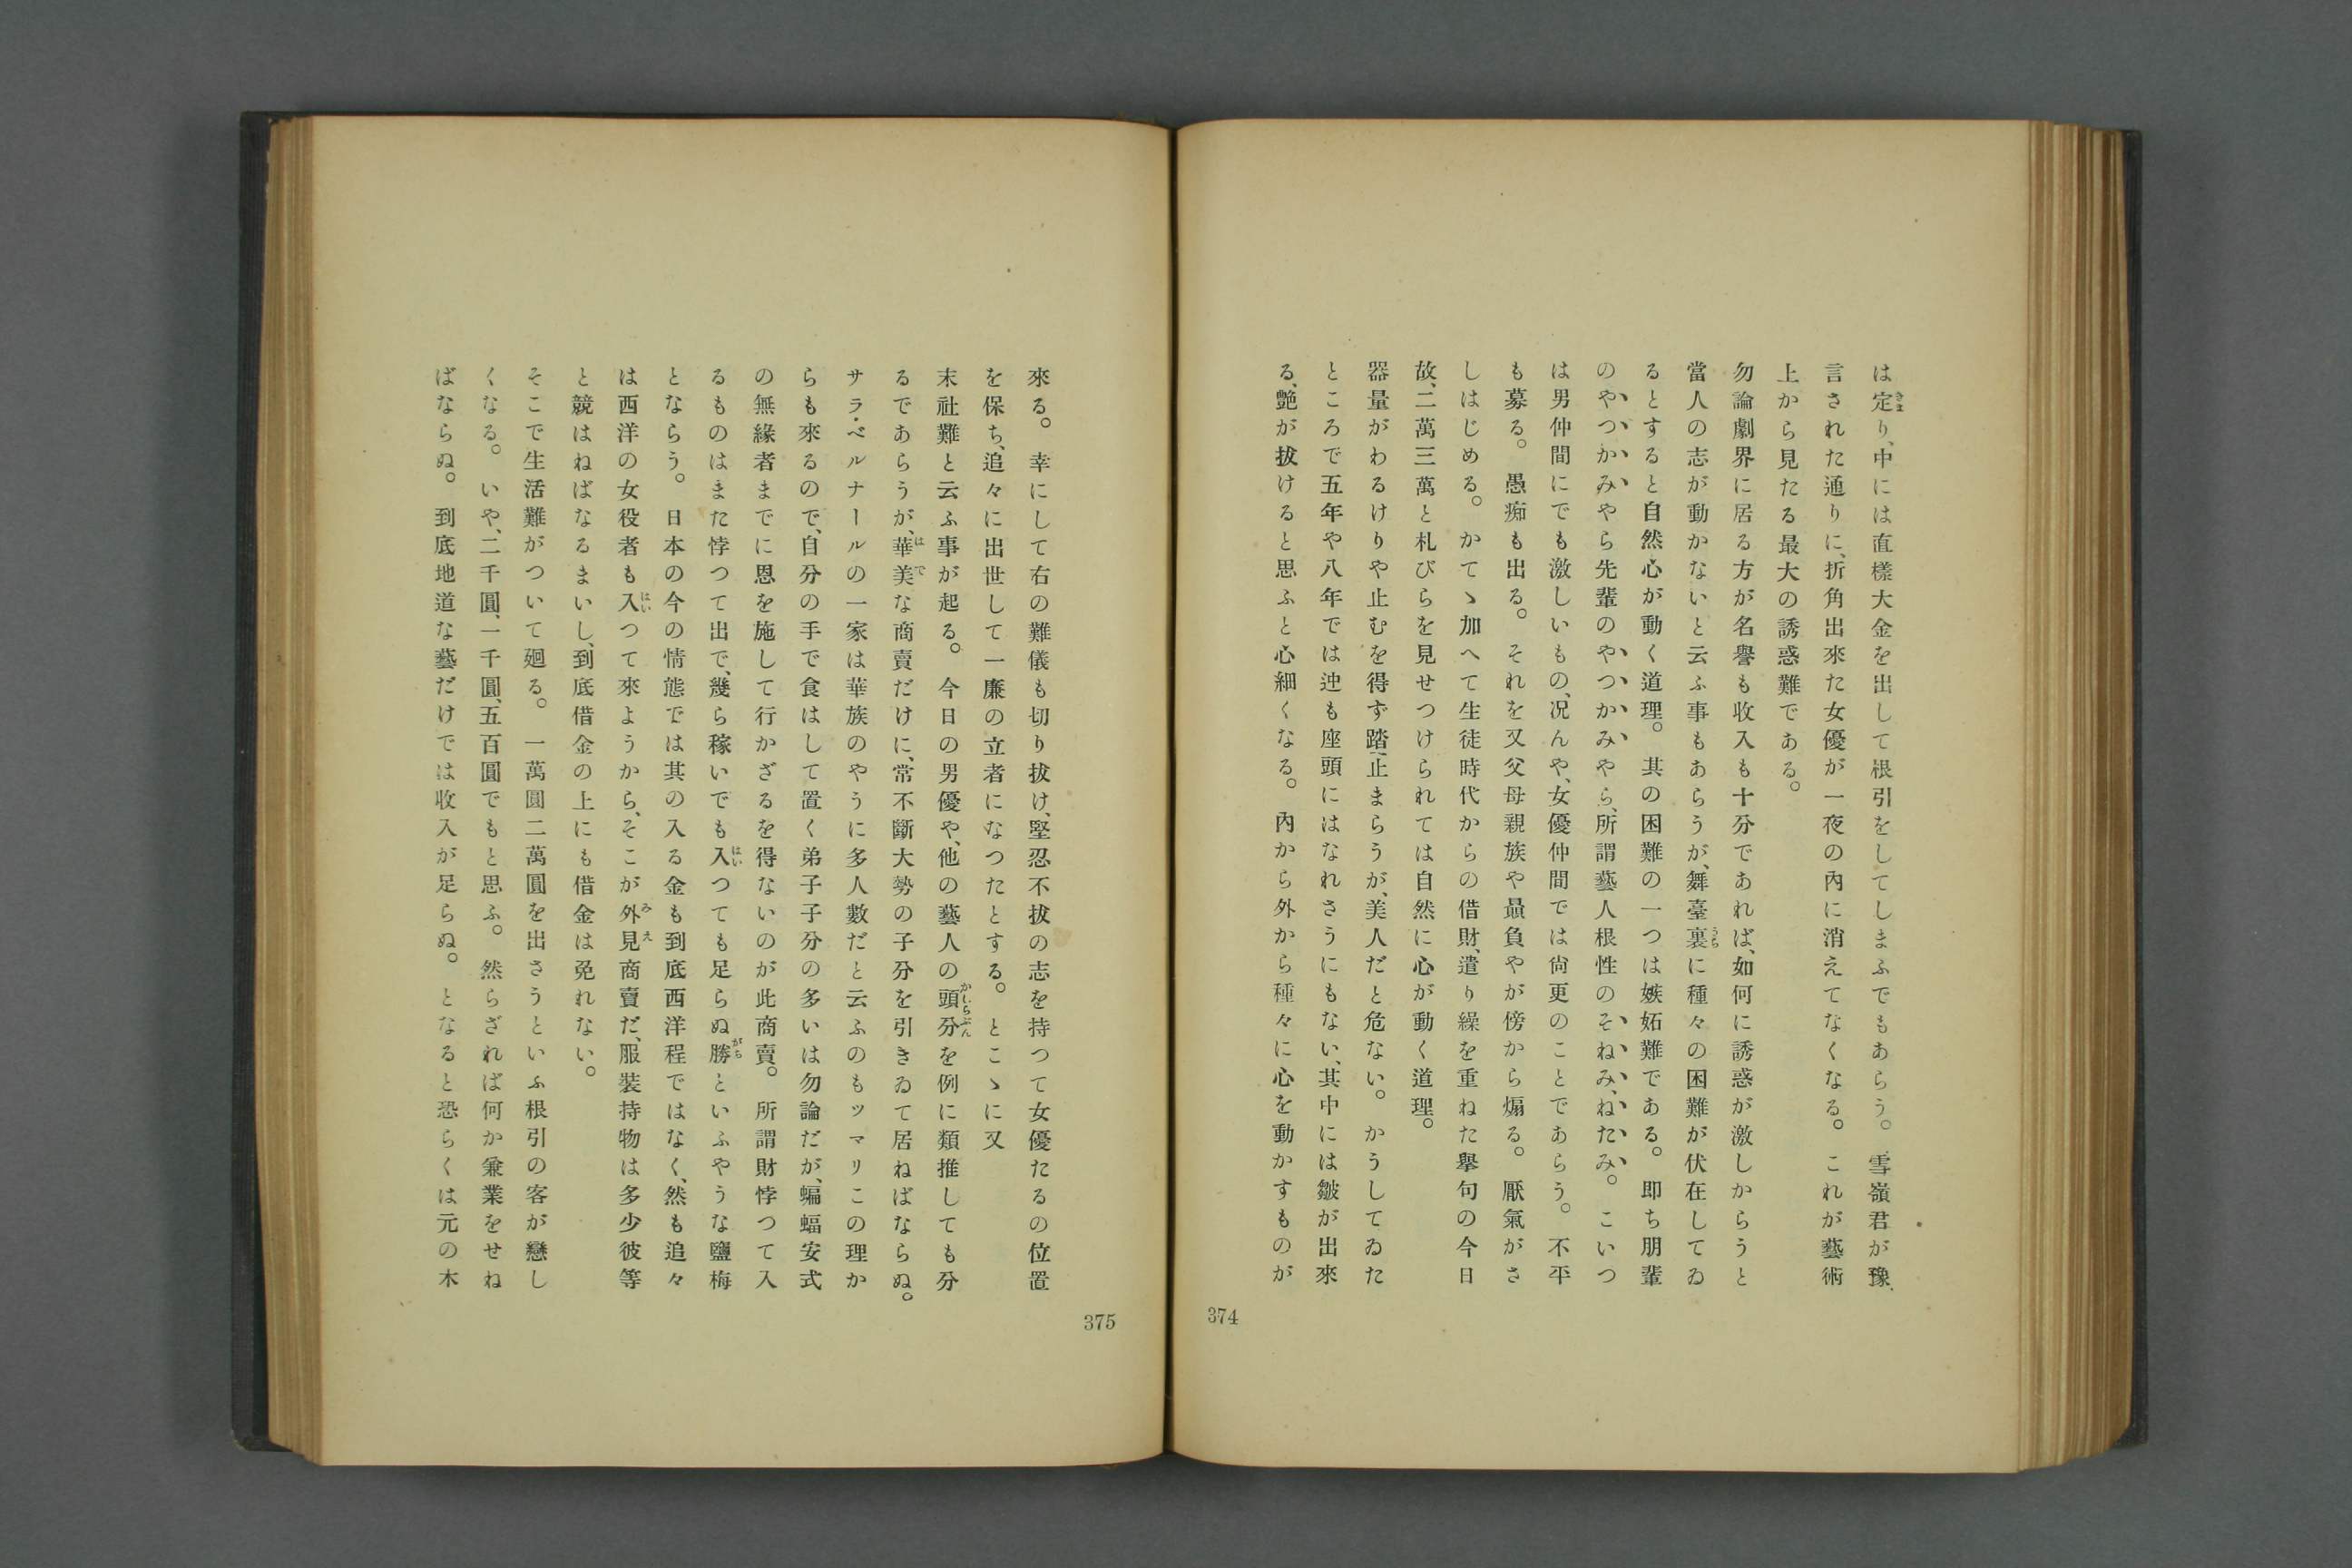 は定り、中には直樣大金を出して根引をしてしまふでもあらう。雪嶺君が豫
言された通りに、折角出來た女優が一夜の內に消えてなくなる。これが藝術
上から見たる最大の誘惑難である。
勿論劇界に居る方が名譽も收入も十分であれば、如何に誘惑が激しからうと
當人の志が動かないと云ふ事もあらうが、舞臺裏に種々の困難が伏在してゐ
るとすると自然心が動く道理。其の困難の一つは嫉妬難である。卽ち朋輩
のやつかみやら先輩のやつかみやら、所謂藝人根性のそねみ、ねたみ。こいつ
は男仲間にでも激しいもの、况んや、女優仲間では尙更のことであらう。不平
も募る。愚痴も出る。それを又父母親族や贔負やが傍から煽る。厭氣がさ
しはじめる。かてゝ加へて生徒時代からの借財、遣り繰を重ねた擧句の今日
故、二萬三萬と札びらを見せつけられては自然に心が動く道理。
器量がわるけりや止むを得ず踏止まらうが、美人だと危ない。かうしてゐた
ところで五年や八年では迚も座頭にはなれさうにもない、其中には皺が出來
る、艶が拔けると思ふと心細くなる。內から外から種々に心を動かすものが
374
來る。幸にして右の難儀も切り拔け、堅忍不拔の志を持つて女優たるの位置
を保ち、追々に出世して一廉の立者になつたとする。とこゝに又
末社難と云ふ事が起る。今日の男優や、他の藝人の頭分を例に類推しても分
るであらうが、華美な商賣だけに、常不斷大勢の子分を引きゐて居ねばならぬ。
サラ・ベルナールの一家は華族のやうに多人數だと云ふのもツマリこの理か
らも來るので、自分の手で食はして置く弟子子分の多いは勿論だが、蝙蝠安式
の無緣者までに恩を施して行かざるを得ないのが此商賣。所謂財悖つて入
るものはまた悖つて出で、幾ら稼いでも入つても足らぬ勝といふやうな鹽梅
とならう。日本の今の情態では其の入る金も到底西洋程ではなく、然も追々
は西洋の女役者も入つて來ようから、そこが外見商賣だ、服裝持物は多少彼等
と競はねばなるまいし、到底借金の上にも借金は免れない。
そこで生活難がついて廻る。一萬圓二萬圓を出さうといふ根引の客が戀し
くなる。いや、二千圓、一千圓、五百圓でもと思ふ。然らざれば何か兼業をせね
ばならぬ。到底地道な藝だけでは收入が足らぬ。となると恐らくは元の木
375